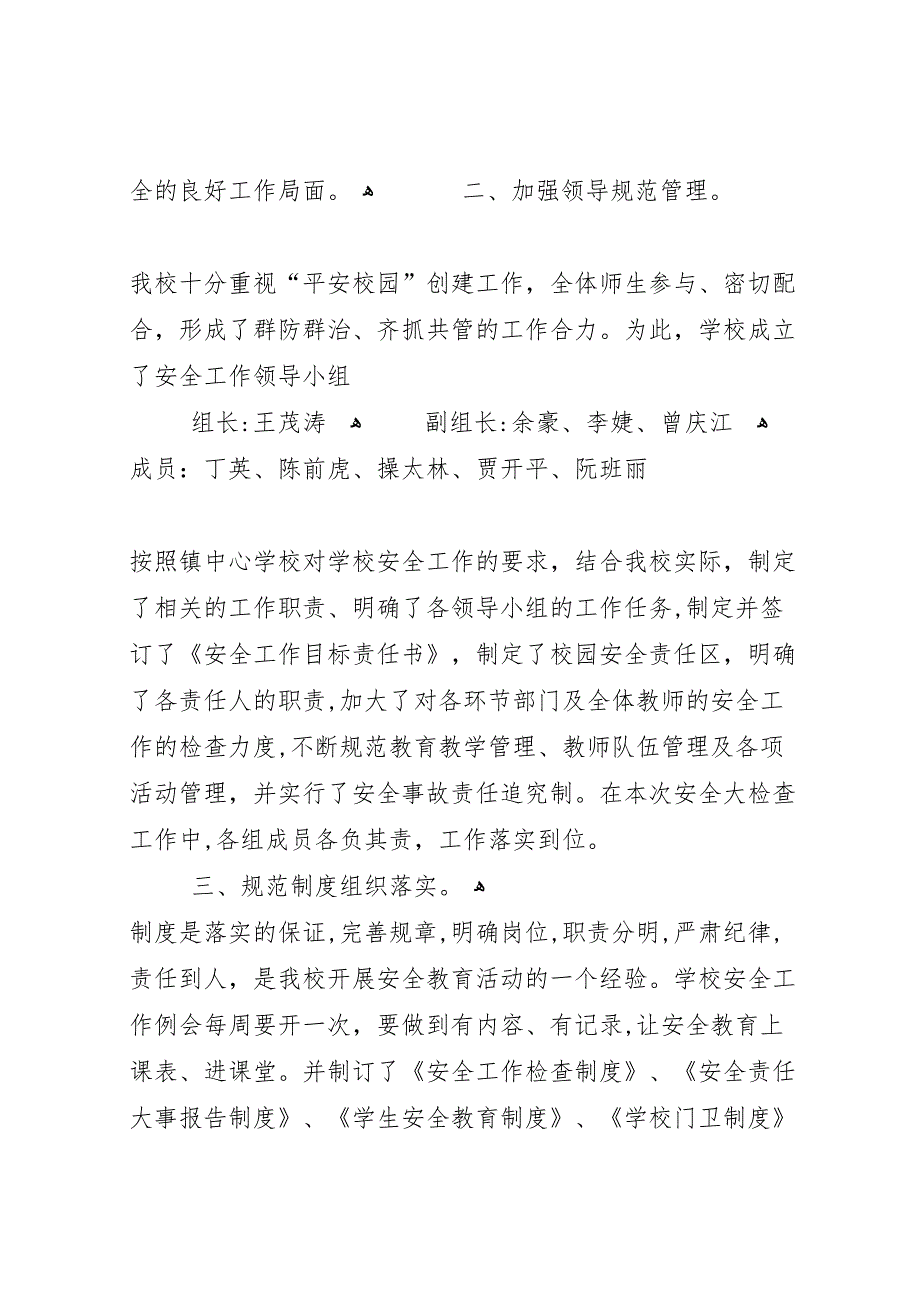 全的良好工作局面。 ﻫ 二、加强领导规范管理。
我校十分重视“平安校园”创建工作，全体师生参与、密切配
合，形成了群防群治、齐抓共管的工作合力。为此，学校成立
了安全工作领导小组
组长:王茂涛 ﻫ 副组长:余豪、李婕、曾庆江 ﻫ
成员：丁英、陈前虎、操太林、贾开平、阮班丽
按照镇中心学校对学校安全工作的要求，结合我校实际，制定
了相关的工作职责、明确了各领导小组的工作任务,制定并签
订了《安全工作目标责任书》，制定了校园安全责任区，明确
了各责任人的职责,加大了对各环节部门及全体教师的安全工
作的检查力度,不断规范教育教学管理、教师队伍管理及各项
活动管理，并实行了安全事故责任追究制。在本次安全大检查
工作中,各组成员各负其责，工作落实到位。
三、规范制度组织落实。 ﻫ
制度是落实的保证,完善规章,明确岗位,职责分明,严肃纪律,
责任到人，是我校开展安全教育活动的一个经验。学校安全工
作例会每周要开一次，要做到有内容、有记录,让安全教育上
课表、进课堂。并制订了《安全工作检查制度》、《安全责任
大事报告制度》、《学生安全教育制度》、《学校门卫制度》